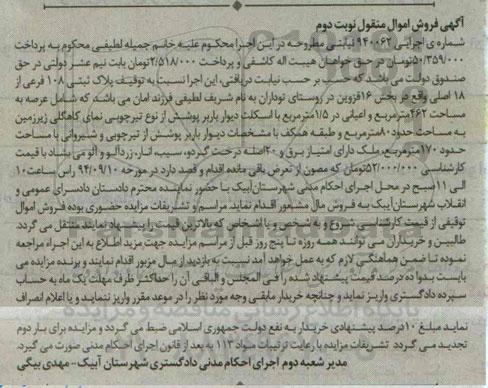 آگهی فروش اموال منقول نوبت دوم
شماره ی اجرایی ۹۴۰۰۶۲ نیابتی مطروحه در این اجرا محکوم علیه خانم جمیله لطیفی محکوم به پرداخت
۵۰/۳۵۹/۰۰۰تومان در حق خواهان هیبت اله کاشفی و پرداخت ۲/۵۱۸/۰۰۰تومان بابت نیم عشر دولتی در حق
صندوق دولت می باشد که حسب بر حسب نیابت دریافتی، این اجرا نسبت به توقیف پلاک ثبتی ۱۰۸ فرعی از
۱۸ اصلی واقع در بخش ۱۶قزوین در روستای توداران به نام شریف لطیفی فرزند امان می باشد که شامل عرصه به
مساحت ۲۶۲مترمربع و اعیانی در ۱/۵مترمربع با اسکلت دیوار باربر پوشش از نوع تیرچوبی نمای کاهگلی زیرزمین
به مساحت حدود ۸۰مترمربع و طبقه همکف با مشخصات دیوار باربر پوشش از تیرچوبی و شیروانی با مساحت
حدود ۱۷۰مترمربع، ملک دارای امتیاز برق و ۲۰اصله درخت گردو، سیب، انار، زردآلو و آلو می باشد با قیمت
کارشناسی ۵۲/۰۰۰/۰۰۰تومان که مصون از تعرض باقی مانده اقدام و قصد دارد در مورخه ۹۴/۰۹/۱۰ راس ساعت۱۰
الی ۱۱صبح در محل اجرای احکام مدنی شهرستان آبیک با حضور نماینده محترم دادستان دادسرای عمومی و
انقلاب شهرستان آبیک به فروش مال مشعور اقدام نماید. مراسم و تشریفات مزایده حضوری بوده فروش اموال
توقیفی از قیمت کارشناسی شروع و به شخص و یا اشخاص که بالاترین قیمت را پیشنهاد نمایند منتقل می گردد.
طالبین و خریداران می توانند همه روزه تا پنج روز قبل از مراسم مزایده جهت مزید اطلاع به این اجراء مراجعه
نموده تا ضمن هماهنگی لازم که به عمل خواهد آمد نسبت به بازدید از مال مزبور اقدام نمایند و برنده مزایده می
بایست بدوا ده درصد قیمت پیشنهاد شده را فی المجلس و الباقی آن را حداکثر ظرف مهلت یک ماه به حساب
سپرده دادگستری واریز نماید و چنانچه خریدار مابقی وجه مورد نظر را در موعد مقرر واریز ننماید و یا اعلام انصراف
نماید مبلغ ۱۰درصد پیشنهادی خریدار به نفع دولت جمهوری اسلامی ضبط می گردد و مزایده برای بار دوم
تجدید می گردد تشریفات مزایده با رعایت ترتیبات مواد ۱۱۳ به بعد از قانون اجرای احکام مدنی صورت می گیرد.
مدیر شعبه دوم اجرای احکام مدنی دادگستری شهرستان آبیک - مهدی بیگی